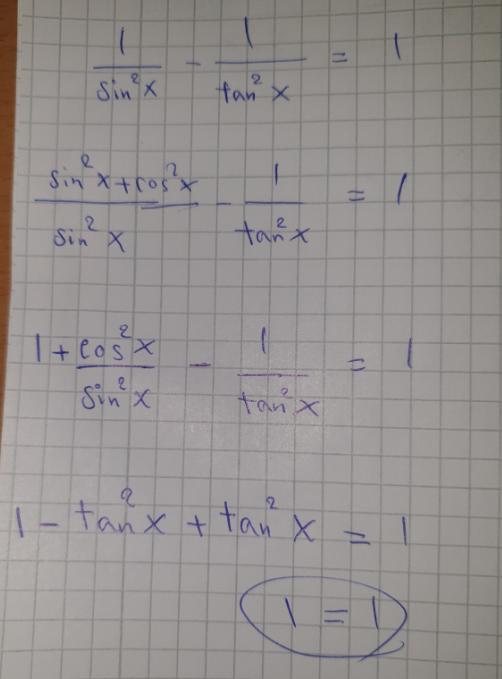 1/sin²x - 1/tan²x = 1
(sin²x + cos²x)/sin²x - 1/tan²x = 1
1 + cos²x/sin²x - 1/tan²x = 1
1 - tan²x + tan²x = 1
1 = 1